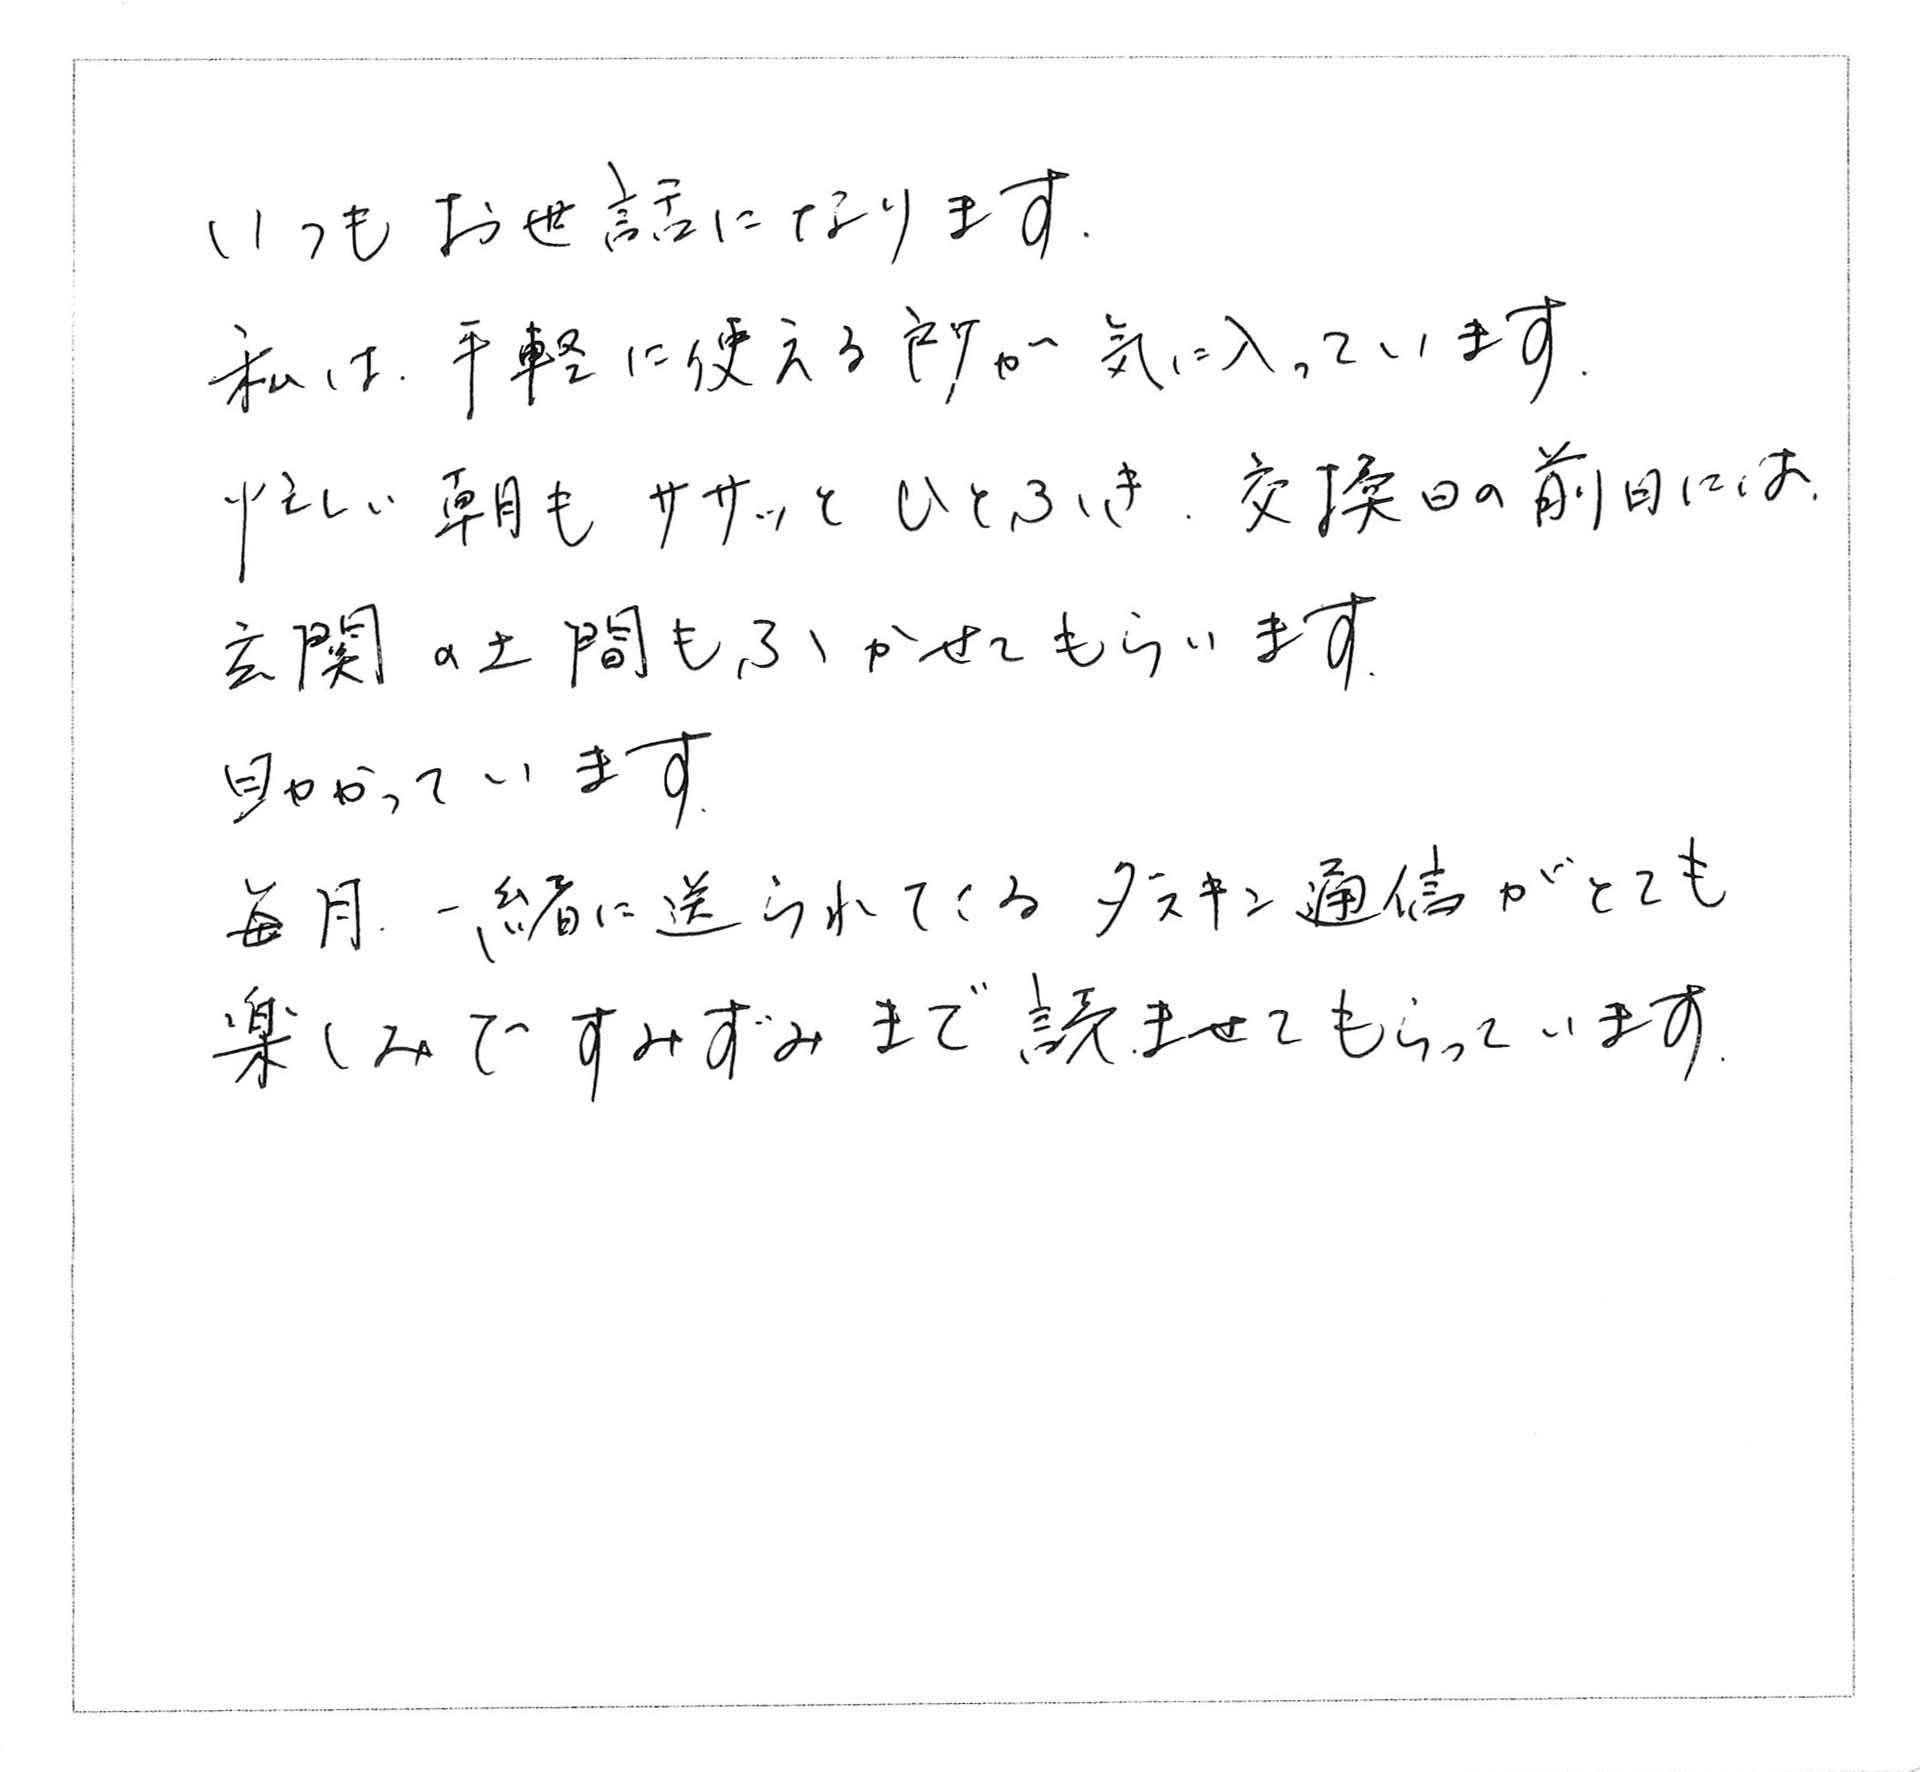 いつもお世話になります.
私は.手軽に使える所が気に入っています.
忙しい朝もササッとひとふき.交換日の前日には.
玄関の土間もふかせてもらいます.
助かっています.
毎月.一緒に送られてくるダスキン通信がとても
楽しみですみずみまで読ませてもらっています.